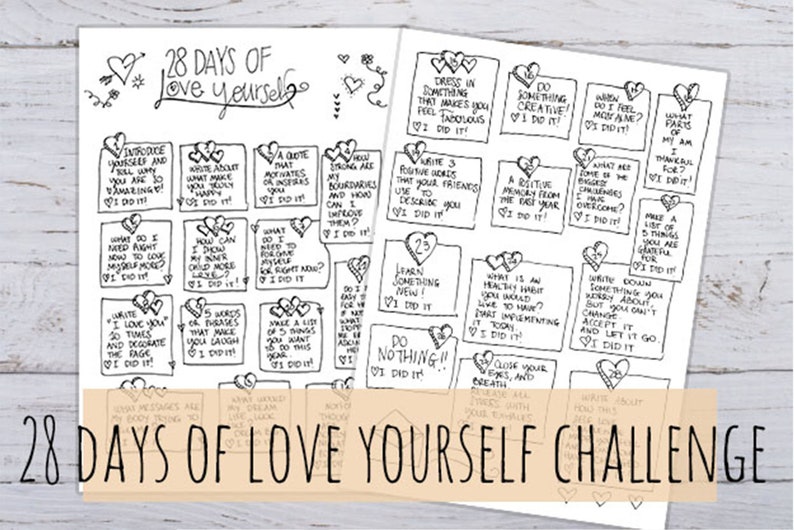 28 DAYS OF
Love yourself
1
INTRODUCE
YOURSELF AND
TELL WHY
YOU ARE SO
AMAZING!
I DID IT!
WRITE ABOUT
WHAT MAKE
YOU TRULY
HAPPY
I DID IT!
A QUOTE
THAT
MOTIVATES
OR INSPIRES
YOU
I DID IT!
HOW
STRONG ARE
MY
BOUNDARIES
AND HOW
CAN I
IMPROVE
THEM?
I DID IT!
WHAT DO I
NEED RIGHT
NOW TO LOVE
MYSELF MORE?
I DID IT!
HOW CAN
I SHOW
MY INNER
CHILD MORE
LOVE?
I DID IT!
WHAT
DO I
NEED TO
FORGIVE
MYSELF
FOR RIGHT NOW?
I DID IT!
WRITE
"I LOVE YOU"
20 TIMES
AND DECORATE
THE PAGE.
I DID IT!
5 WORDS
OR PHRASES
THAT MAKE
YOU LAUGH
I DID IT!
MAKE A LIST
OF 5 THINGS
YOU WANT
TO DO THIS
YEAR.
I DID IT!
WHAT MESSAGES ARE
MY BODY TRYING TO
WHAT WOULD
MY DREAM
LIFE LOOK
15
DRESS IN
SOMETHING
THAT MAKES YOU
FEEL FABULOUS
I DID IT!
16
DO
SOMETHING
CREATIVE!
I DID IT!
WHEN
DO I FEEL
MOST ALIVE?
I DID IT!
WHAT
PARTS
OF
MY AM
I
THANKFUL
FOR?
I DID IT!
WRITE 3
POSITIVE WORDS
THAT YOUR FRIENDS
USE TO
DESCRIBE YOU
I DID IT!
A POSITIVE
MEMORY FROM
THE PAST YEAR
I DID IT!
WHAT ARE
SOME OF THE
BIGGEST
CHALLENGES
I HAVE
OVERCOME?
I DID IT!
MAKE A
LIST OF
5 THINGS
YOU ARE
GRATEFUL
FOR
I DID IT!
23
LEARN
SOMETHING
NEW!
I DID IT
WHAT IS AN
HEALTHY HABIT
YOU WOULD
LIKE TO HAVE?
START IMPLEMENTING
IT TODAY.
I DID IT!
25
WRITE DOWN
SOMETHING YOU
WORRY ABOUT,
BUT YOU CAN'T
CHANGE.
ACCEPT IT
AND LET IT GO.
I DID IT!
DO
NOTHING!!
I DID IT!
CLOSE YOUR
EYES, AND
BREATH
RELEASE ALL
STRESS WITH
YOUR EXHALES
28
WRITE ABOUT
HOW THIS
SELF LOVE
28 DAYS OF LOVE YOURSELF CHALLENGE